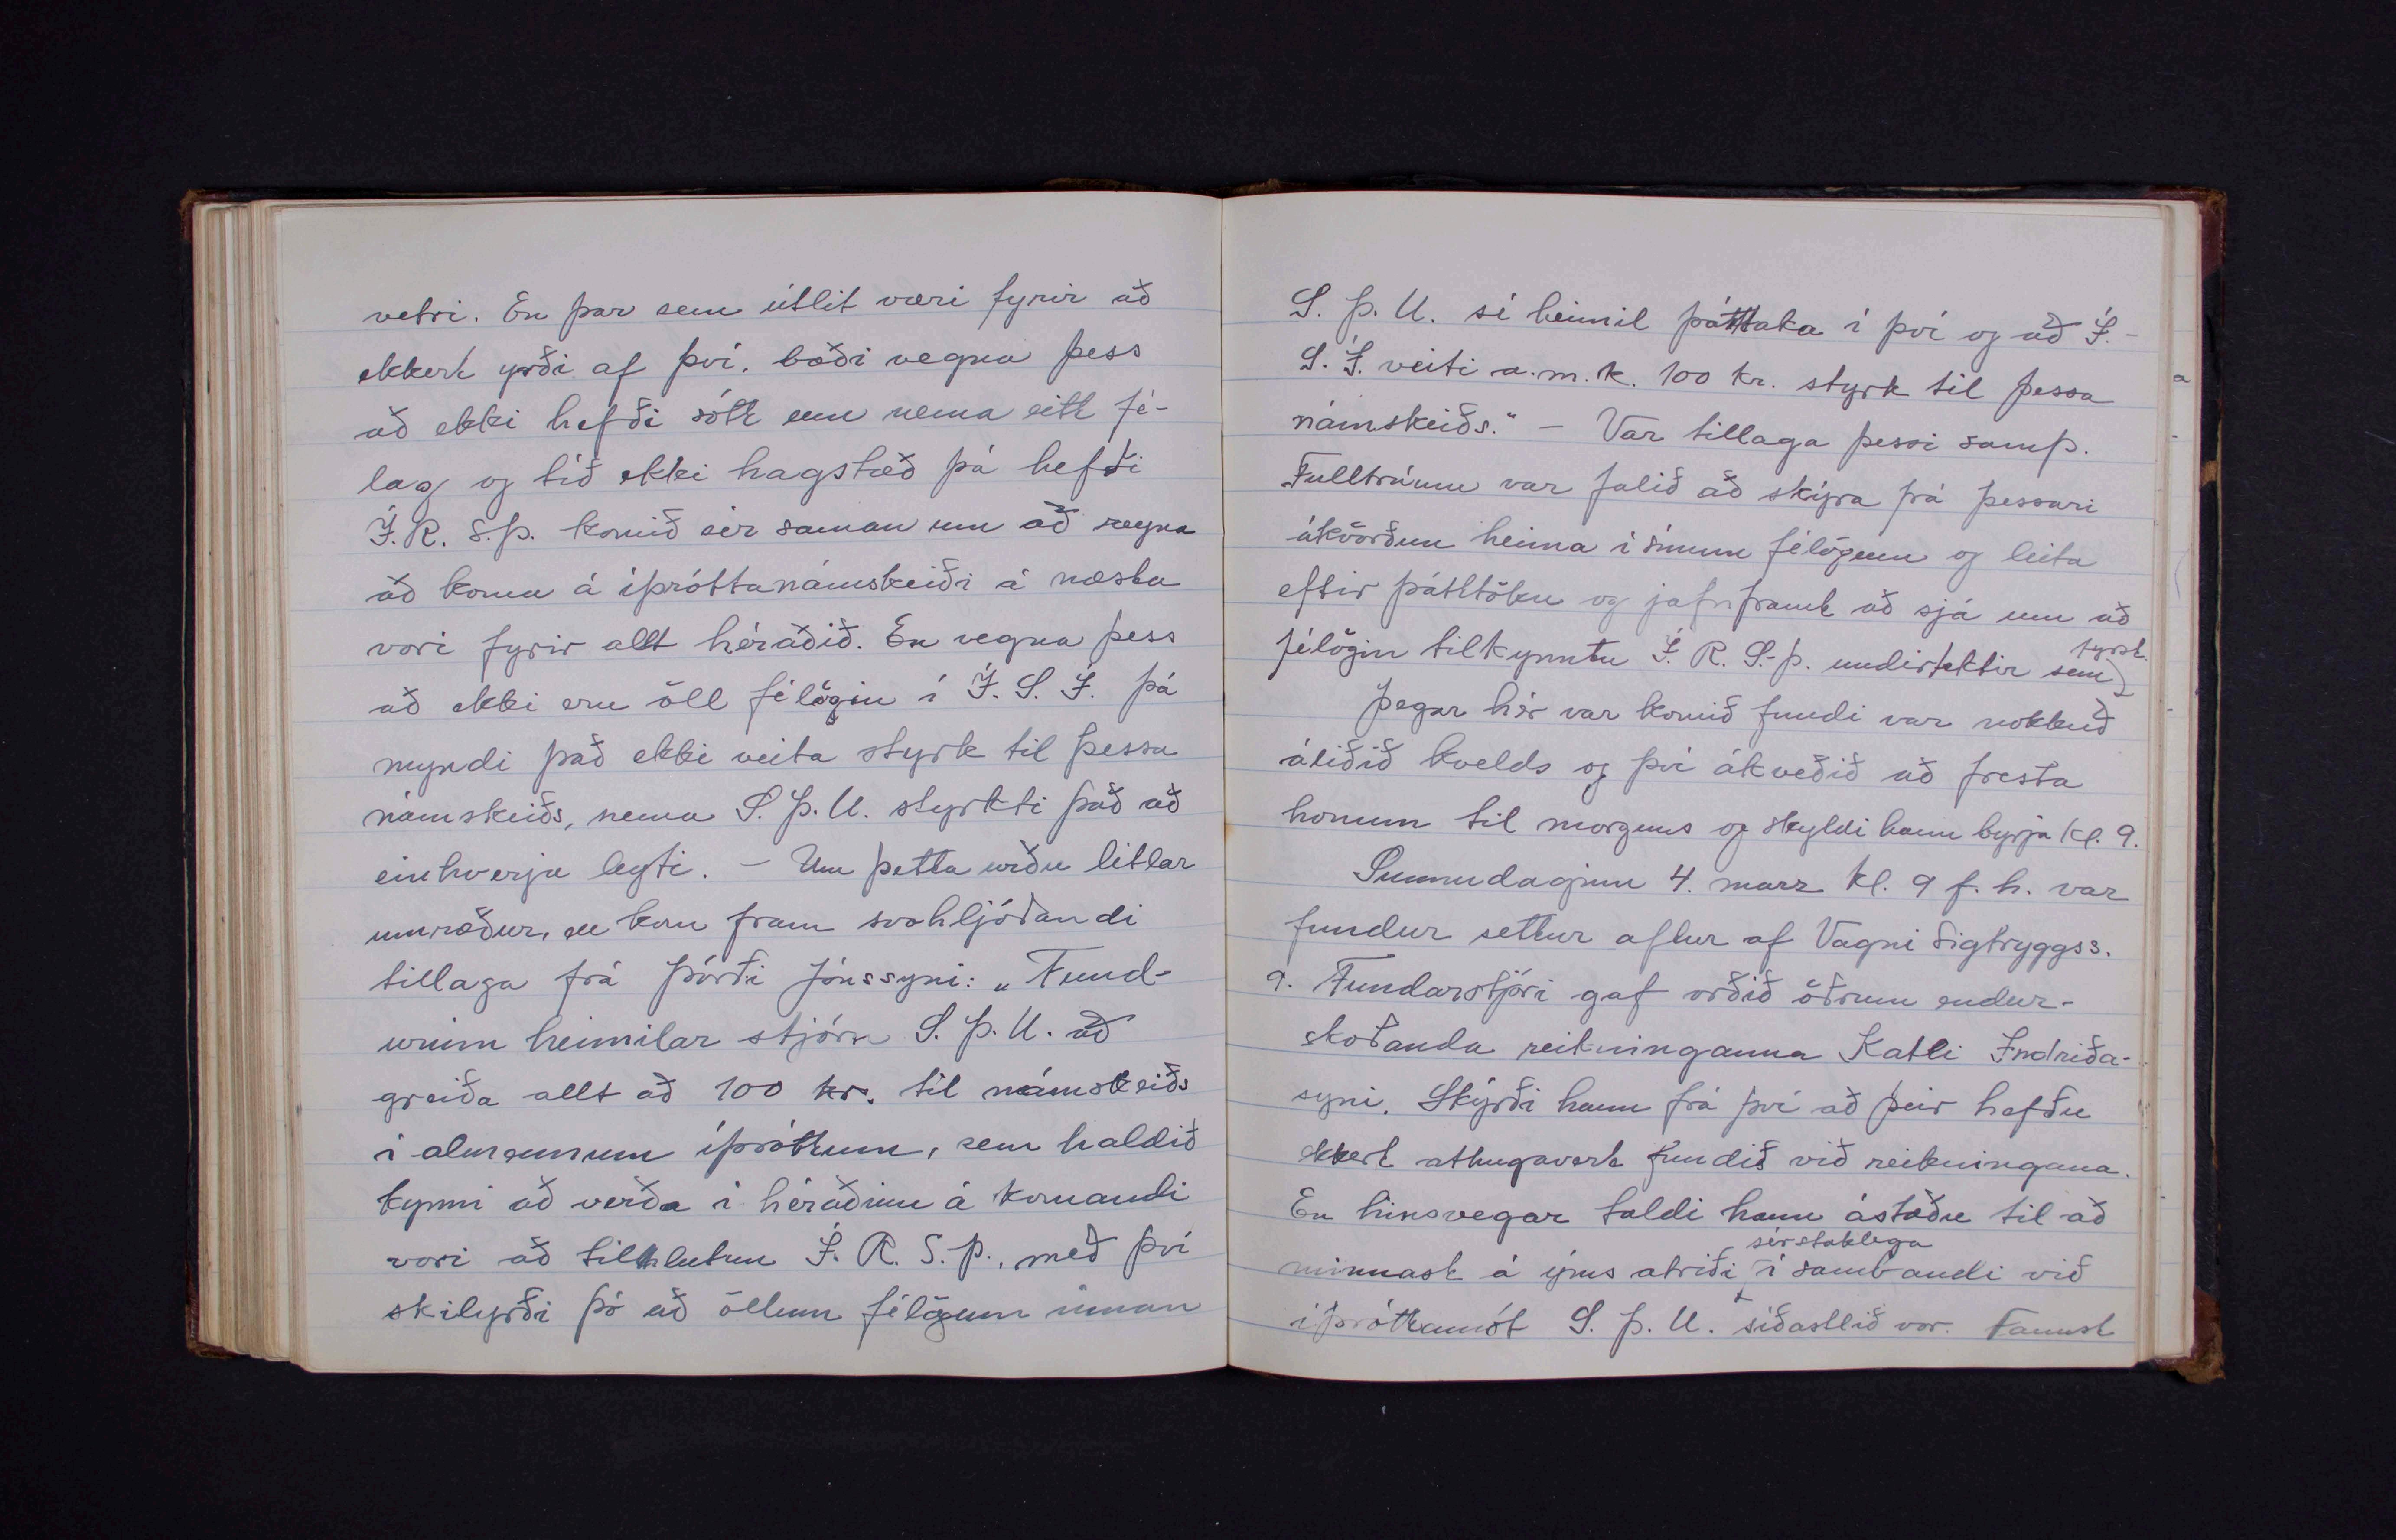 vetri. En þar sem útlit væri fyrir að
ekkert yrði af því, bæði vegna þess
að ekki hefði sótt um nema eitt fé-
lag og tíð ekki hagstæð þá hefði
Í.R. S.Þ. komið sér saman um að reyna
að koma á íþróttanámskeiði á næsta
vori fyrir allt héraðið. En vegna þess
að ekki eru öll félögin í Í.S.Í. þá
myndi það ekki veita styrk til þessa
námskeiðs, nema S.Þ.U. styrkti það að
einhverju leyti. – Um þetta urðu litlar
umræður, en kom fram svohljóðandi
tillaga frá Þórði Jónssyni: „Fund-
urinn heimilar stjórn S.Þ.U. að
greiða allt að 100 kr. til námskeiðs
í almennum íþróttum, sem haldið
kynni að verða í héraðinu á komandi
vori að tilhlutun Í.R.S.Þ., með því
skilyrði þó að öllum félögum innan
S.Þ.U. sé heimil þátttaka í því og að Í.-
S.Í. veiti a.m.k. 100 kr. styrk til þessa
námskeiðs." – Var tillaga þessi samþ.
Fulltrúum var falið að skýra frá þessari
ákvörðun heima í sínum félögum og leita
eftir þátttöku og jafnframt að sjá um að
félögin tilkynntu Í.R.S.-Þ. undirtektir sem fyrst.
Þegar hér var komið fundi var nokkuð
áliðið kvelds og því ákveðið að fresta
honum til morguns og skyldi hann byrja kl. 9.
Sunnudaginn 4. marz kl. 9 f.h. var
fundur settur aftur af Vagni Sigtryggss.
9. Fundarstjóri gaf orðið öðrum endur-
skoðanda reikninganna Katli Indriða-
syni. Skýrði hann frá því að þeir hefðu
ekkert athugavert fundið við reikningana.
En hinsvegar taldi hann ástæðu til að
minnast á ýms atriði sérstaklega í sambandi við
íþróttamót S.Þ.U. síðastlið vor. Fannst